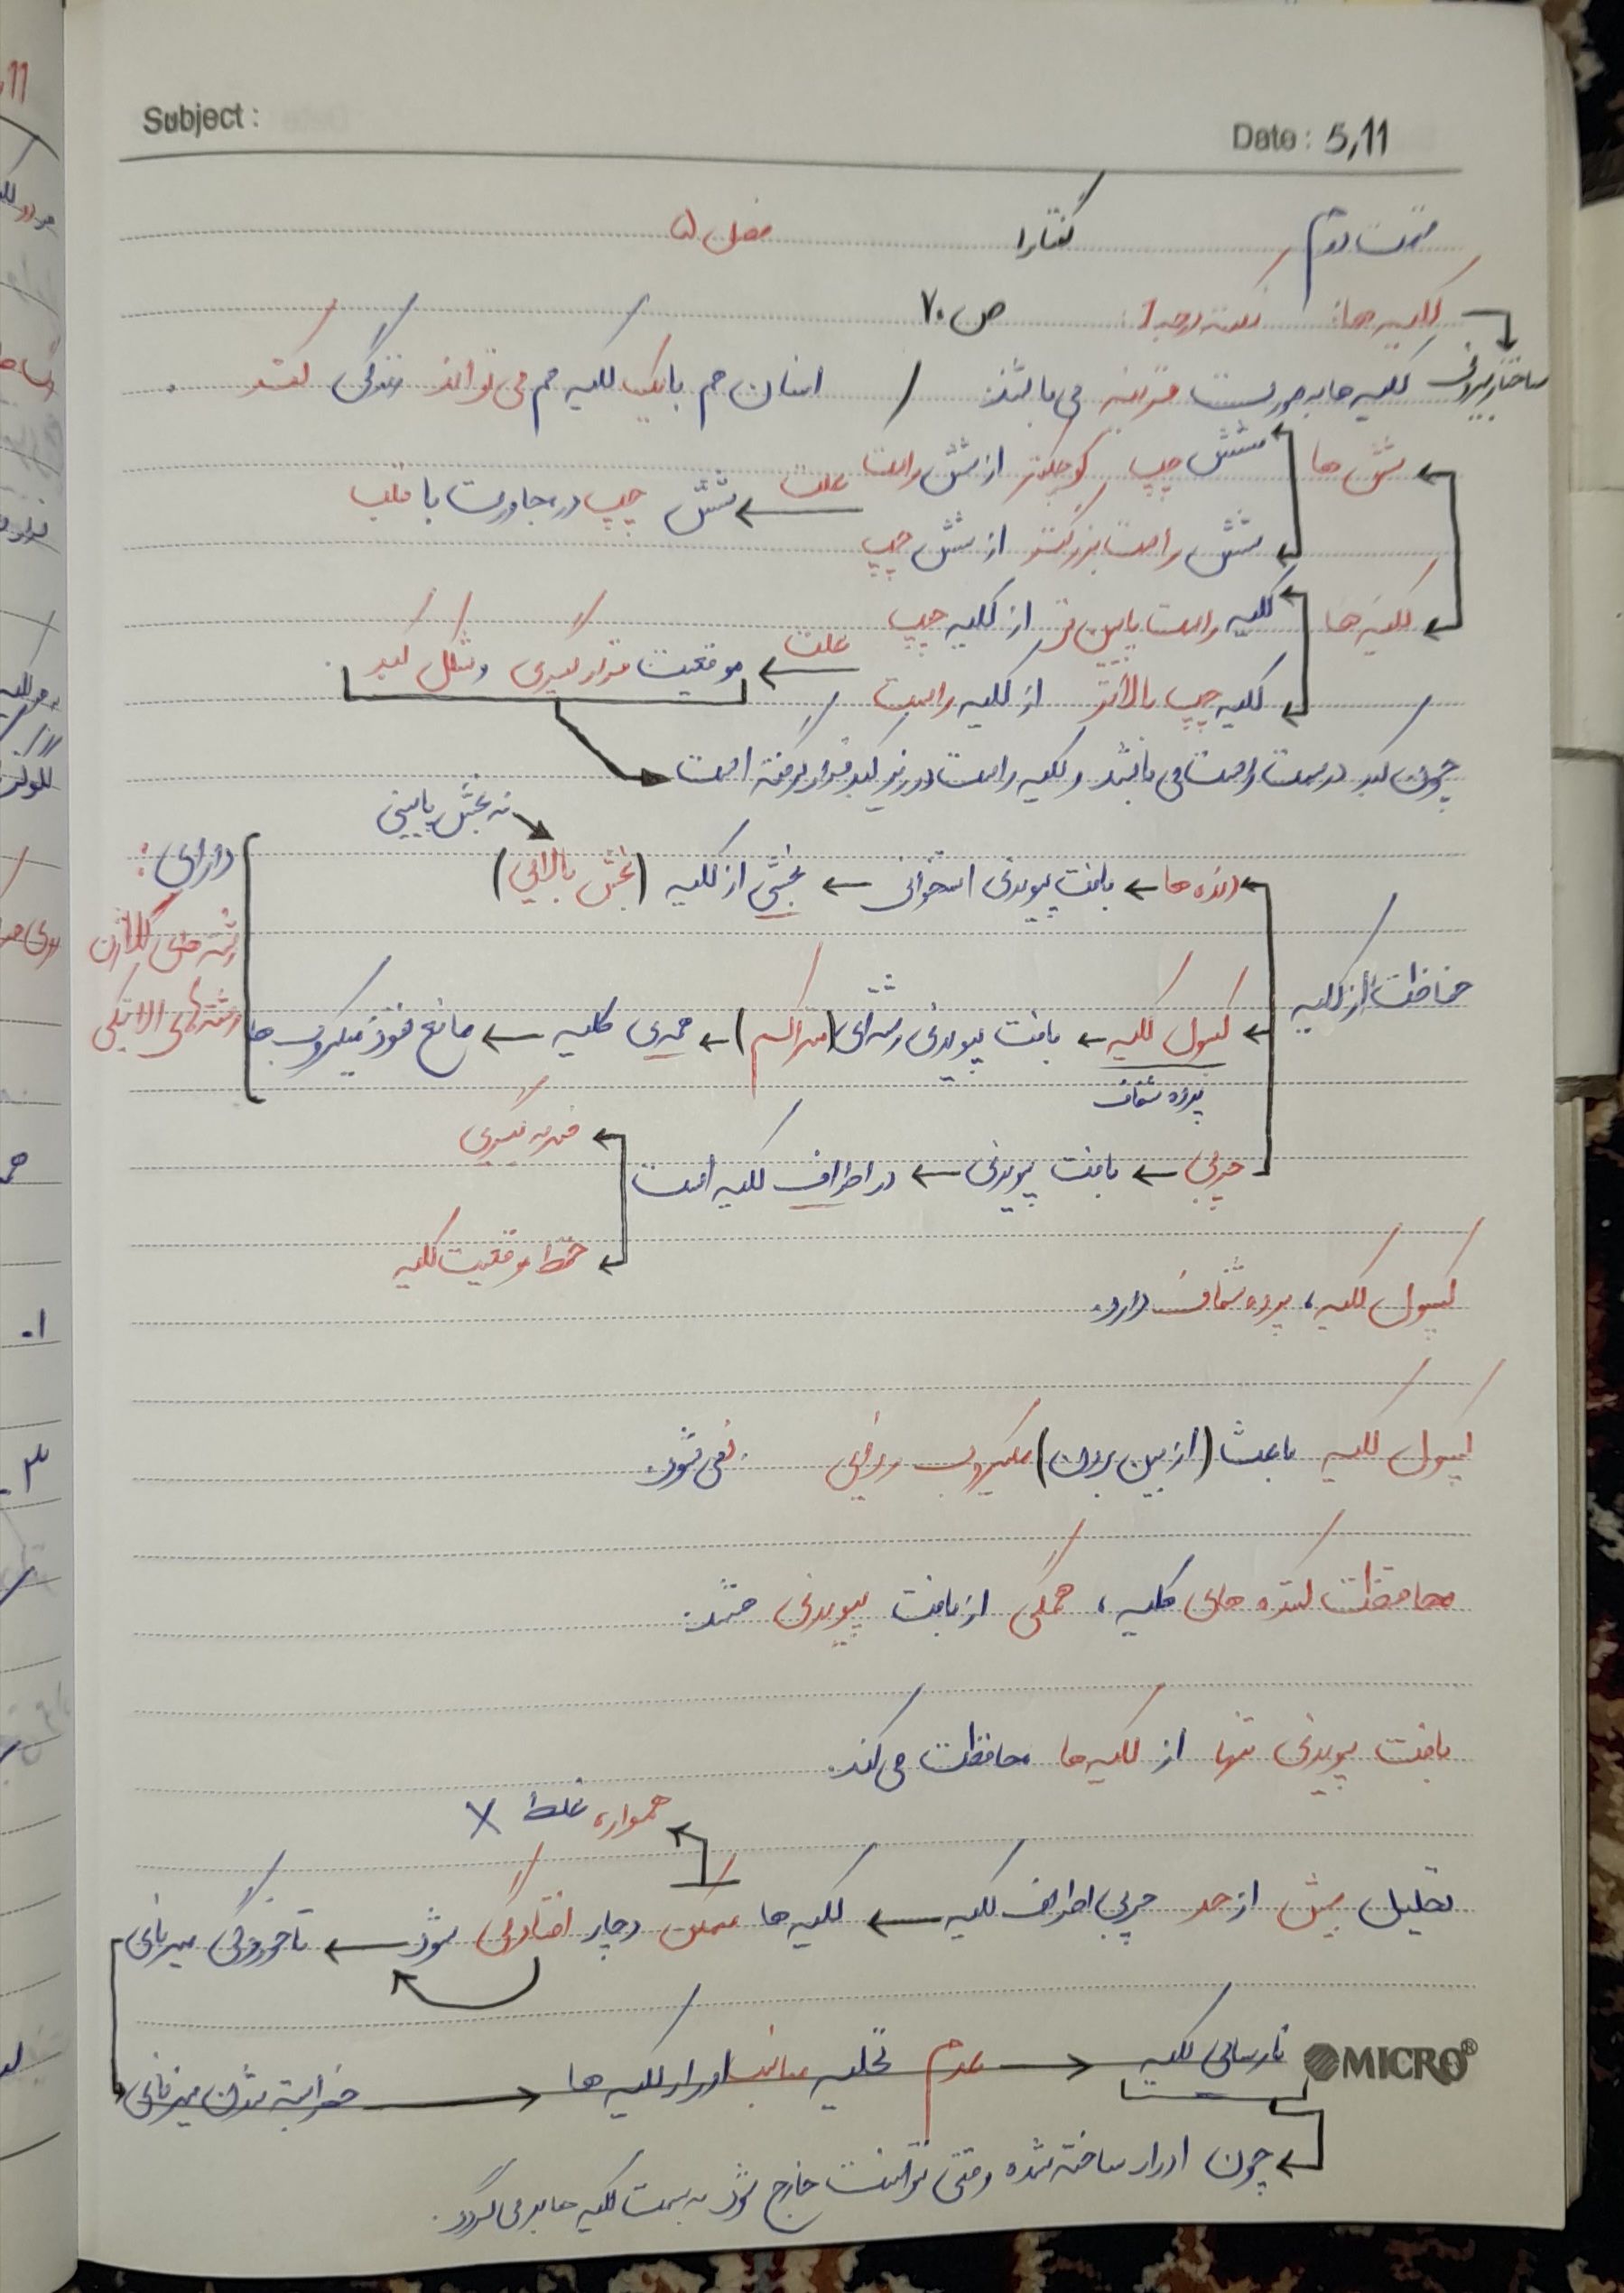 Subject :
Date : 5,11
قسمت دوم گفتار ۱ فصل ۵
کلیه ها: ص ۷۰
ساختار بیرونی کلیه ها به صورت قرینه می باشند. / انسان هم با یک کلیه هم می تواند زندگی کند.
شش ها
شش چپ کوچکتر از شش راست
شش راست بزرگتر از شش چپ
علت ← شش چپ در مجاورت با قلب
کلیه ها
کلیه راست پایین تر از کلیه چپ
کلیه چپ بالاتر از کلیه راست
علت ← موقعیت قرارگیری و شکل کبد.
چون کبد در سمت راست می باشد و کلیه راست در زیر کبد قرار گرفته است
نه بخش پایینی
حفاظت از کلیه
دنده ها ← بافت پیوندی استخوانی ← بخشی از کلیه (بخش بالایی)
کپسول کلیه ← بافت پیوندی رشته ای (متراکم) ← همه ی کلیه ← مانع نفوذ میکروب ها
پرده شفاف
دارای :
رشته های کلاژن
رشته های الاستیکی
چربی ← بافت پیوندی ← در اطراف کلیه است
ضربه گیری
حفظ موقعیت کلیه
کپسول کلیه، پرده شفاف دارد.
کپسول کلیه باعث (از بین بردن) میکروب نمی شود.
محافظت کننده های کلیه، همگی از بافت پیوندی هستند.
بافت پیوندی تنها از کلیه ها محافظت می کند.
همواره غلط X
تحلیل بیش از حد چربی اطراف کلیه ← کلیه ها ممکن دچار افتادگی شود ← تاخوردگی میزنای
بسته شدن میزنای → عدم تخلیه مناسب ادرار کلیه ها → نارسایی کلیه
MICRO®
چون ادرار ساخته شده وقتی نتوانست خارج شود به سمت کلیه ها برمی گردد.